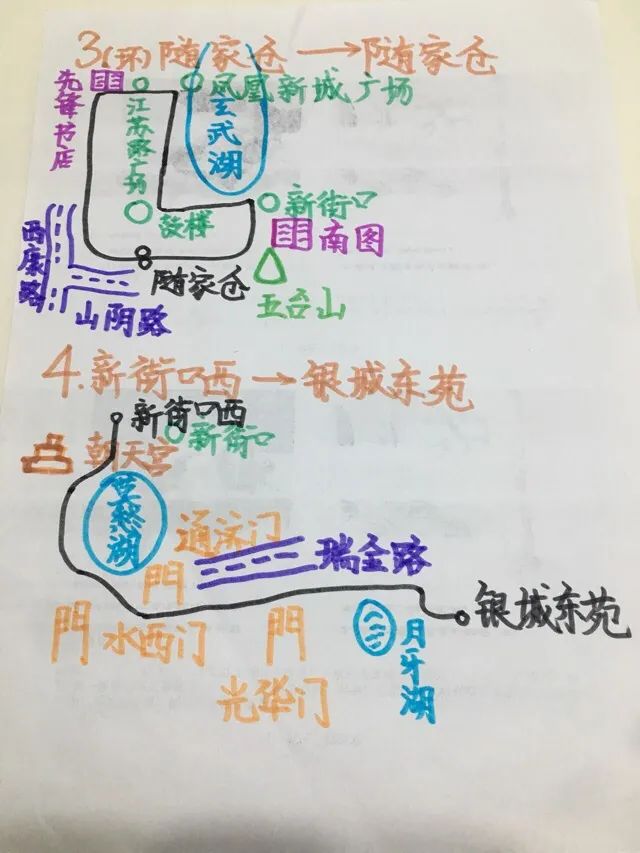 3(环)随家仓→随家仓
先锋书店
江苏路广场
凤凰新城广场
玄武湖
新街口
鼓楼
南图
西康路
随家仓
五台山
山阴路
4.新街口西→银城东苑
新街口西
新街口
朝天宫
莫愁湖
通济门
瑞金路
門
門
水西门
門
银城东苑
月牙湖
光华门